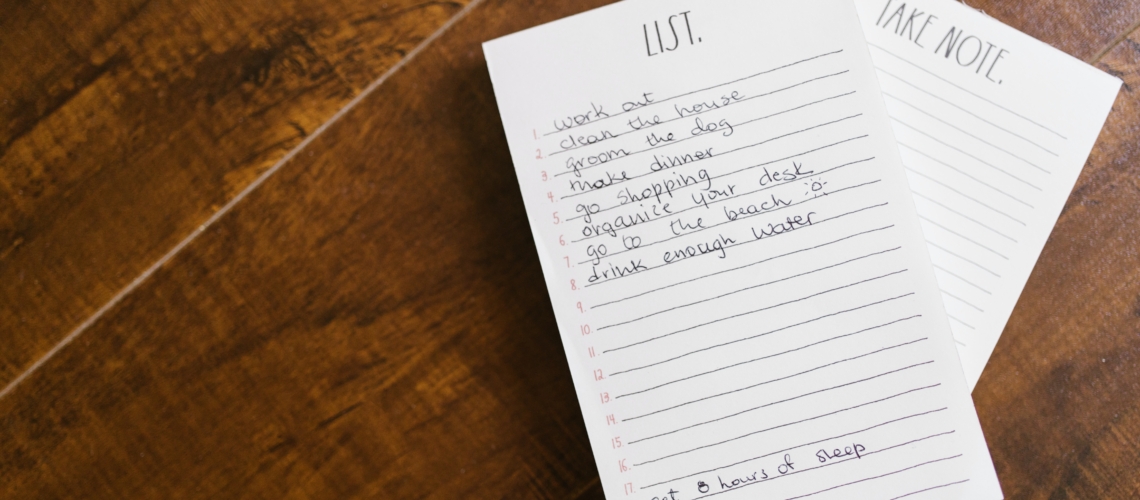 LIST.
TAKE NOTE.
1. work out
2. clean the house
3. groom the dog
4. make dinner
5. go shopping
6. organize your desk
7. go to the beach
8. drink enough water
9.
10.
11.
12.
13.
14.
15.
16.
17. 8 hours of sleep